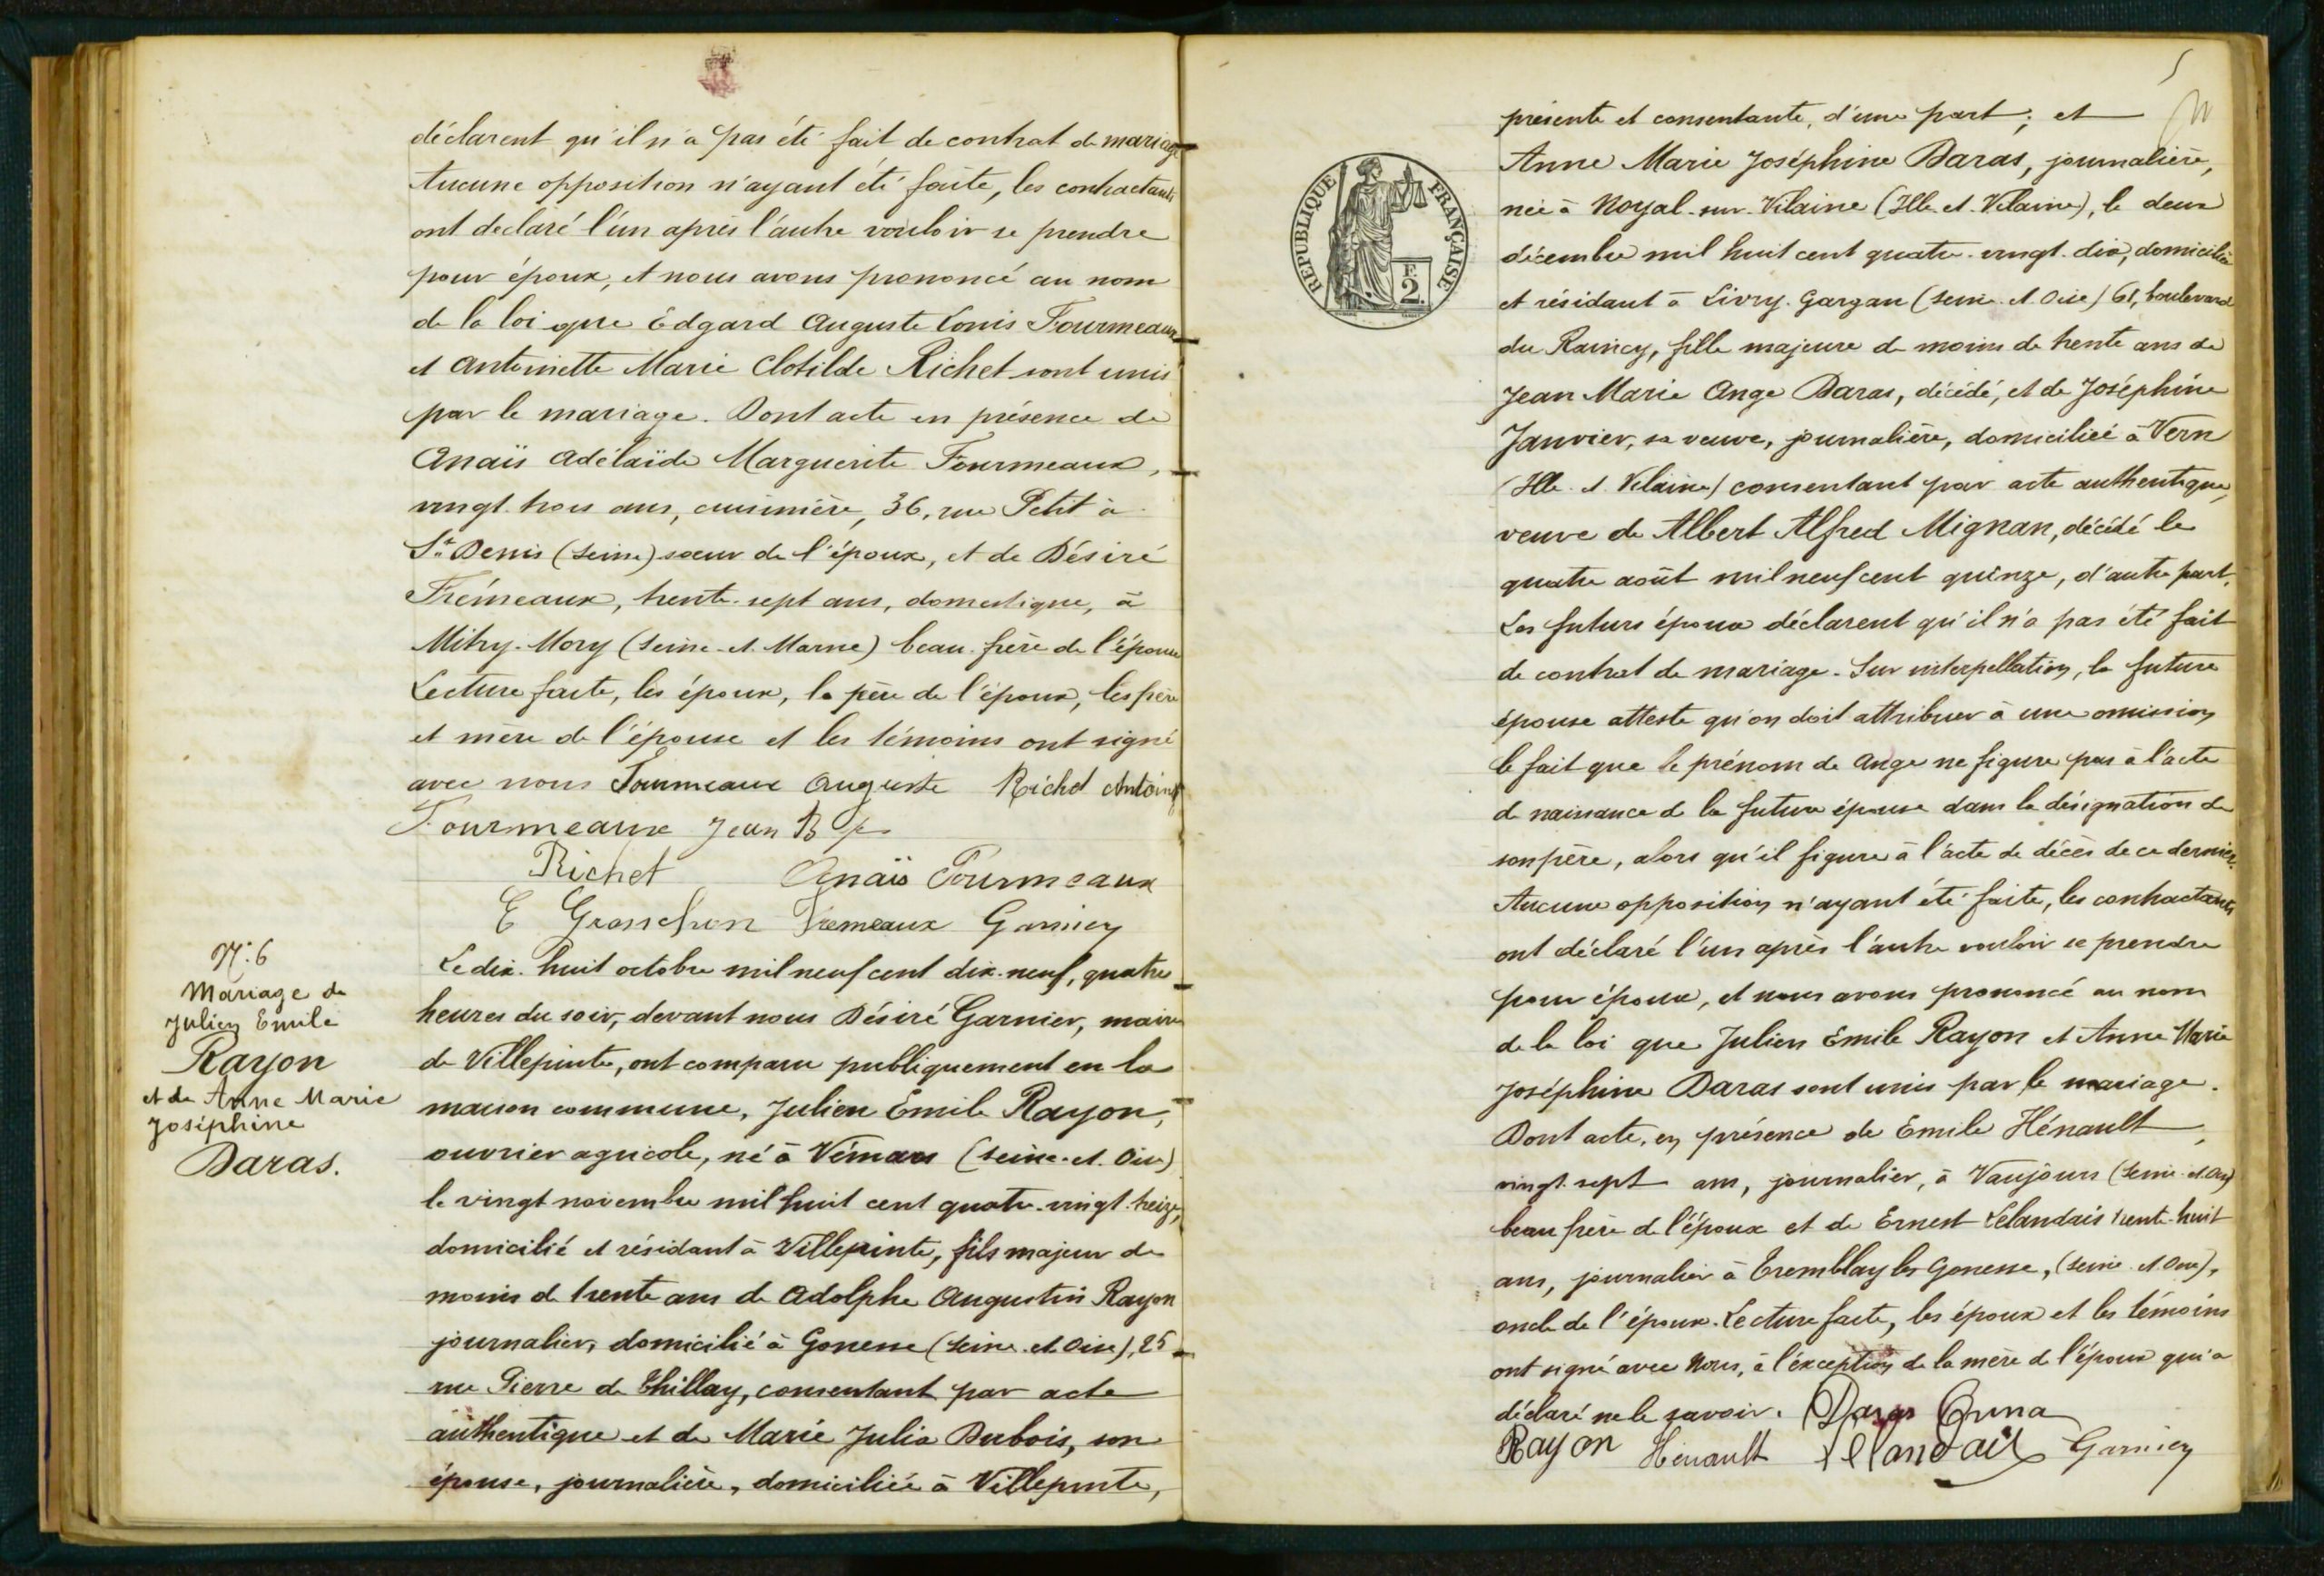 déclarent qu'il n'a pas été fait de contrat de mariage
Aucune opposition n'ayant été faite, les contractants
ont déclaré l'un après l'autre vouloir se prendre
pour époux, et nous avons prononcé au nom
de la loi que Edgard Auguste Louis Fourmeaux
et Antoinette Marie Clotilde Richet sont unis
par le mariage. Dont acte en présence de
Anaïs Adélaïde Marguerite Fourmeaux,
vingt-trois ans, cuisinière, 36, rue Petit à
St Denis (Seine) sœur de l'époux, et de Désiré
Frémeaux, trente-sept ans, domestique, à
Mitry-Mory (Seine-et-Marne) beau-frère de l'épouse
Lecture faite, les époux, le père de l'époux, les père
et mère de l'épouse et les témoins ont signé
avec nous Fourmeaux Auguste Richet Antoinette
Fourmeaux Jean B
Richet Anaïs Fourmeaux
E Granchon Fremeaux Garnier
N° 6
Mariage de
Julien Emile
Rayon
et de Anne Marie
Joséphine
Daras.
Le dix-huit octobre mil neuf cent dix-neuf, quatre
heures du soir, devant nous Désiré Garnier, maire
de Villepinte, ont comparu publiquement en la
maison commune, Julien Emile Rayon,
ouvrier agricole, né à Vémars (Seine-et-Oise)
le vingt novembre mil huit cent quatre-vingt-treize,
domicilié et résidant à Villepinte, fils majeur de
moins de trente ans de Adolphe Augustin Rayon
journalier, domicilié à Gonesse (Seine-et-Oise), 25
rue Pierre de Thillay, consentant par acte
authentique et de Marie Julia Dubois, son
épouse, journalière, domiciliée à Villepinte,
5
RÉPUBLIQUE FRANÇAISE
F.
2.
présente et consentante, d'une part; et
Anne Marie Joséphine Daras, journalière,
née à Noyal-sur-Vilaine (Ille-et-Vilaine), le deux
décembre mil huit cent quatre-vingt-dix, domiciliée
et résidant à Livry-Gargan (Seine-et-Oise) 61, boulevard
du Raincy, fille majeure de moins de trente ans de
Jean Marie Ange Daras, décédé, et de Joséphine
Janvier, sa veuve, journalière, domiciliée à Vern
(Ille-et-Vilaine) consentant par acte authentique,
veuve de Albert Alfred Mignan, décédé le
quatre août mil neuf cent quinze, d'autre part.
Les futurs époux déclarent qu'il n'a pas été fait
de contrat de mariage. Sur interpellation, la future
épouse atteste qu'on doit attribuer à une omission
le fait que le prénom de Ange ne figure pas à l'acte
de naissance de la future épouse dans la désignation de
son père, alors qu'il figure à l'acte de décès de ce dernier.
Aucune opposition n'ayant été faite, les contractants
ont déclaré l'un après l'autre vouloir se prendre
pour époux, et nous avons prononcé au nom
de la loi que Julien Emile Rayon et Anne Marie
Joséphine Daras sont unis par le mariage.
Dont acte, en présence de Emile Hénault,
vingt-sept ans, journalier, à Vaujours (Seine-et-Oise)
beau frère de l'époux et de Ernest Lelandais trente-huit
ans, journalier à Tremblay les Gonesse, (Seine-et-Oise),
oncle de l'époux. Lecture faite, les époux et les témoins
ont signé avec Nous, à l'exception de la mère de l'époux qui a
déclaré ne le savoir. Daras Anna
Rayon Henault Lelandais Garnier